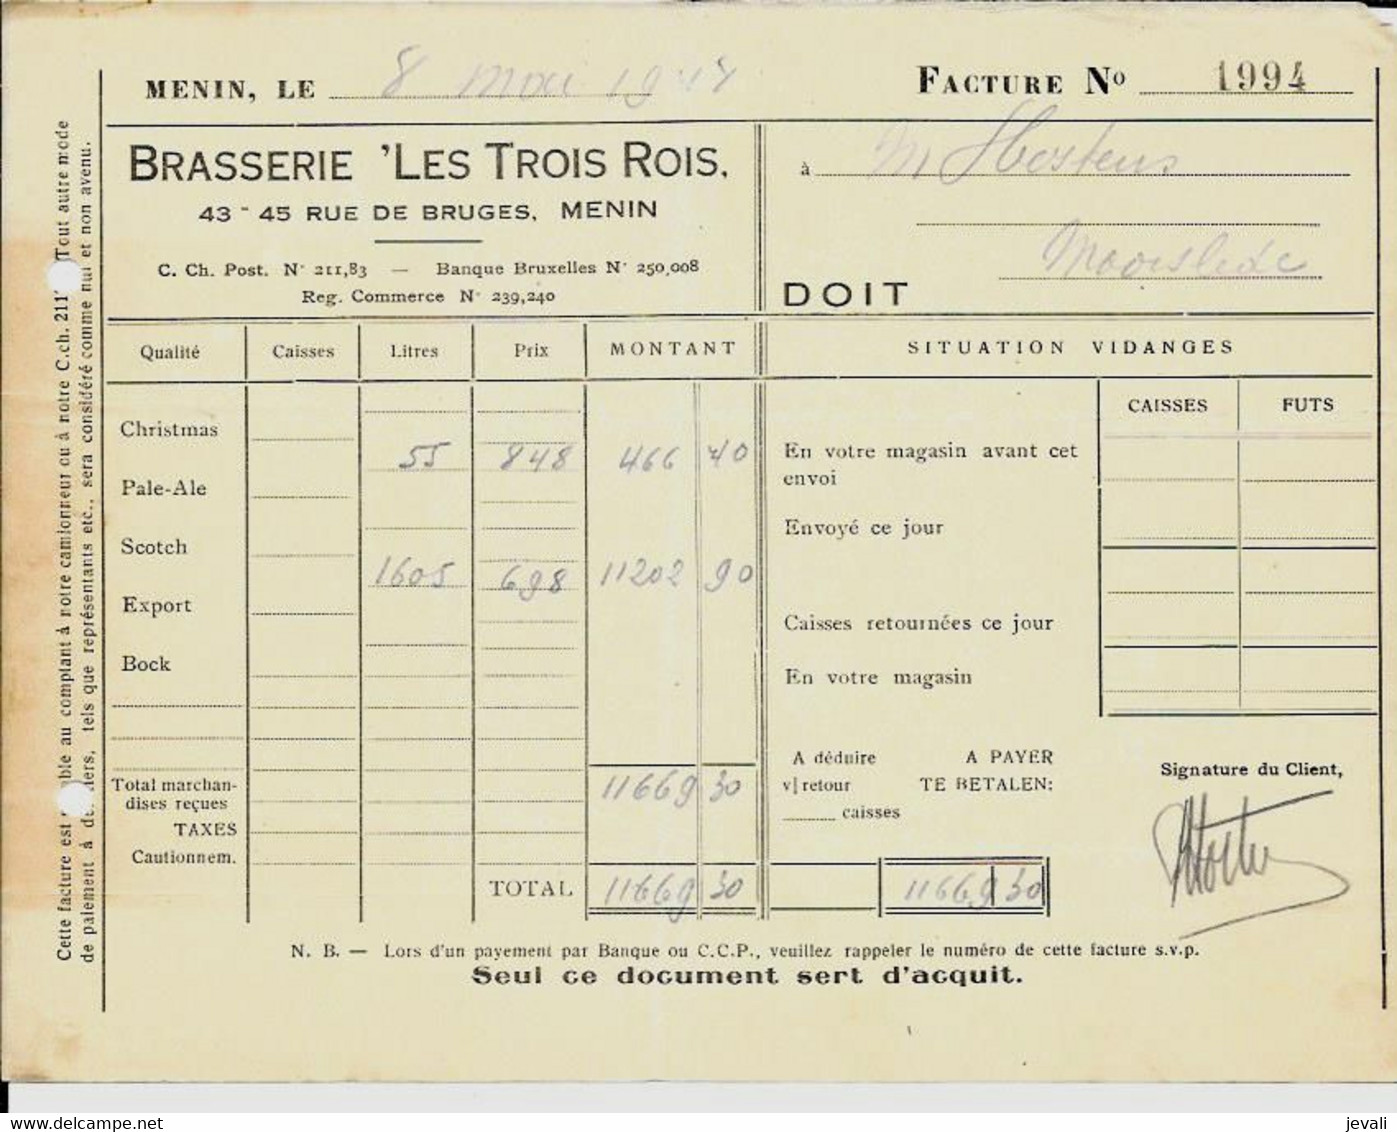 MENIN, LE 8 Mai
FACTURE No 1994
BRASSERIE 'LES TROIS ROIS,
43 - 45 RUE DE BRUGES, MENIN
C. Ch. Post. N· 211,83 — Banque Bruxelles N· 250,008
Reg. Commerce N· 239,240
à M Hostens
Moorslede
DOIT
Qualité Caisses Litres Prix MONTANT
SITUATION VIDANGES
CAISSES FUTS
Christmas
55 848 466 40
Pale-Ale
Scotch
1605 698 11202 90
Export
Bock
Total marchan-
dises reçues 11669 30
TAXES
Cautionnem.
TOTAL 11669 30
En votre magasin avant cet
envoi
Envoyé ce jour
Caisses retournées ce jour
En votre magasin
A déduire A PAYER
v|retour TE BETALEN:
caisses
11669 30
Signature du Client,
N. B. — Lors d'un payement par Banque ou C.C.P., veuillez rappeler le numéro de cette facture s.v.p.
Seul ce document sert d'acquit.
Cette facture est ble au comptant à notre camionneur ou à notre C.ch. 211 (Tout autre mode
de paiement à de iers, tels que représentants etc., sera considéré comme nul et non avenu.
jevali